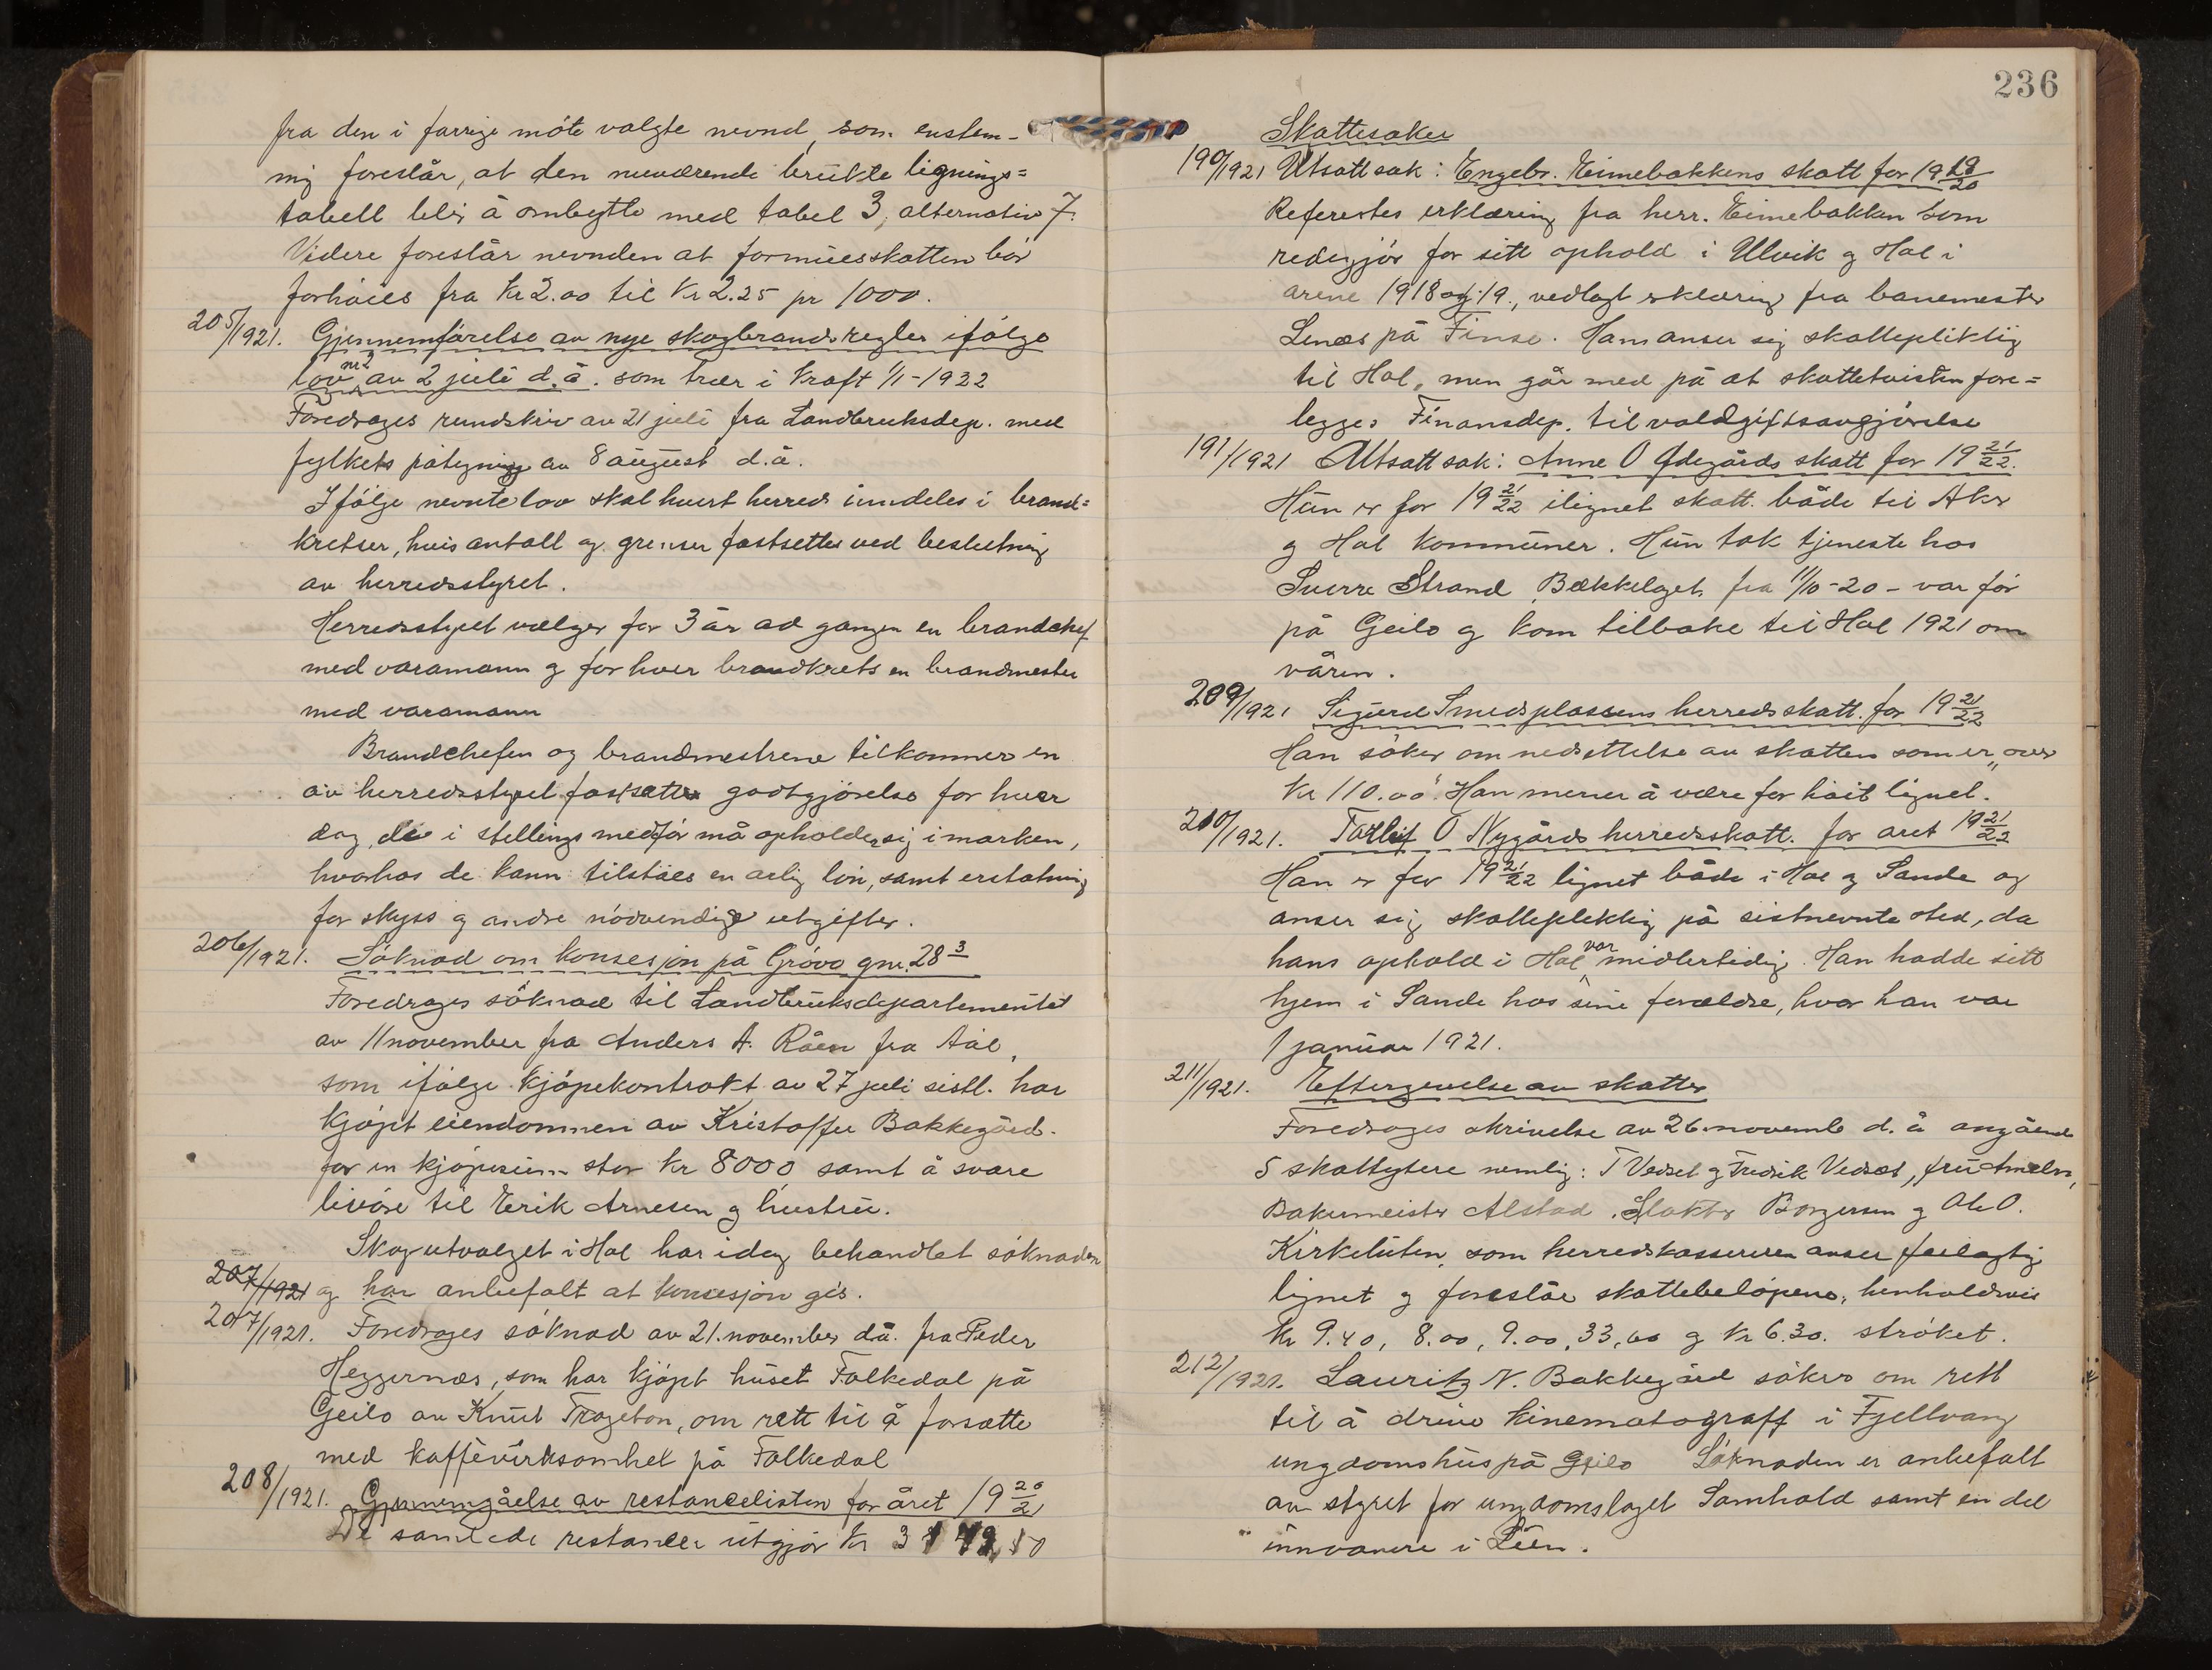 fra den i forrige möte valgte nevnd, som enstem-
mig foreslår, at den nuværende brukte lignings=
tabell blir å ombytte med tabel 3, alternativ 7.
Videre foreslår nevnden at formuesskatten bör
forhöies fra Kr 2.00 til Kr 2.25 pr 1000.
205/1921. Gjennemförelse av nye skogbrandsregler ifölge
lov nr 2 av 2 juli d.å. som trær i kraft 1/1-1922
Foredroges rundskriv av 21 juli fra Landbruksdep. med
fylkets påtegning av 8 august d.å.
Ifölge nevnte lov skal hvert herred inndeles i brand=
kretser, hvis antall og grenser fastsettes ved beslutning
av herredsstyret.
Herredsstyret vælger for 3 år ad gangen en brandchef
med varamann og for hver brandkrets en brandmester
med varamann
Brandchefen og brandmestrene tilkommer en
av herredsstyret fastsatte godtgjörelse for hver
dag, de i stillings medför må opholde sig i marken,
hvorhos de kann tilståes en årlig lön, samt erstatning
for skyss og andre nödvendige utgifter.
206/1921. Söknad om konsesjon på Grövo gnr. 28 3
Foredroges söknad til Landbruksdepartementet
av 11 november fra Anders A. Råen fra Ål,
som ifölge kjöpekontrakt av 27 juli sistl. har
kjöpt eiendommen av Kristoffer Bakkegård.
for en kjöpesum stor kr 8000, samt å svare
livöre til Erik Arnesen og hustru.
Skogutvalget i Hol har idag behandlet söknaden
207/1921 og har anbefalt at konsesjon gis.
207/1921. Foredroges söknad av 21. november då. fra Peder
Heggernæs, som har kjöpt huset Folkedal på
Geilo av Knut Trageton, om rett til å forsætte
med kaffevirksomhet på Folkedal
208/1921. Gjennemgåelse av restancelisten for året 19 20/21
De samlede restancer utgjör Kr 3 50
236
Skattesaker
190/1921 Utsatt sak: Engebr. Eimebakkens skatt for 19 19/20
Referertes erklæring fra herr. Eimebakken som
redegjör for sitt ophold i Ulvik og Hol i
årene 1918 og 19., vedlagt erklæring fra banemester
Lenæs på Finse. Han anser sig skattepliktig
til Hol, men går med på at skattetvisten fore=
legges Finansdep. til voldgiftsavgjörelse
191/1921 Utsatt sak: Anne O Ödegårds skatt for 19 21/22.
Hun er for 19 21/22 ilignet skatt. både til Aker
og Hol kommuner. Hun tok tjeneste hos
Sverre Strand Bækkelaget fra 11/10-20 - var för
på Geilo og kom tilbake til Hol 1921 om
våren.
209/1921 Sigurd Smedsplassens herredsskatt. for 19 21/22
Han söker om nedsettelse av skatten som er „over
Kr 110.00". Han mener å være for höit lignet.
210/1921. Torleif O Nygårds herredsskatt. for året 19 21/22
Han er for 19 21/22 lignet både i Hol og Sande og
anser sig skattepliktig på sistnevnte sted, da
hans ophold i Hol var midlertidig. Han hadde sitt
hjem i Sande hos sine forældre, hvor han var
1 januar 1921.
211/1921. Eftergivelse av skatter
Foredroges skrivelse av 26 novemb d. å angående
5 skattytere nemlig: T Vedset og Fredrik Vedset, fru Ameln,
Bakermeister Alstad, Slakter Borgersen og Ole O.
Kirkeluten, som herredskassereren anser feilagtig
lignet og foreslår skattebelöpene, henholdsvis
Kr 9.40, 8.00, 9.00, 33,00 og Kr 6.30. ströket.
212/1921. Lauritz N. Bakkegård söker om rett
til å drive kinematograff i Fjellvang
ungdomshus på Geilo Söknaden er anbefalt
av styret for ungdomslaget Samhald samt en del
innvånere i Lien.